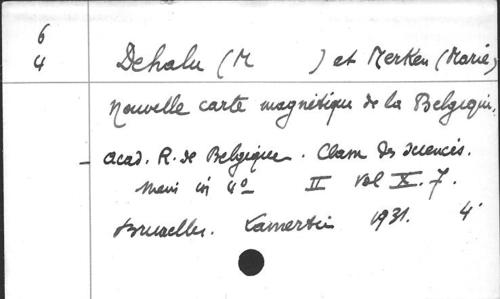 6
4
Dehalu (M ) et Merken (Marie)
Nouvelle carte magnétique de la Belgique.
— Acad. R. de Belgique. Classe des sciences.
Mem in 4° II Vol X. 7.
Bruxelles. Lamertin 1931. 4°